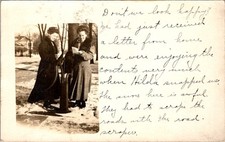 Don't we look happy?
We had just received
a letter from home
and were enjoying the
contents very much
when Hilda snapped us.
the snow here is awful
they had to scrape the
roads with the road
scraper